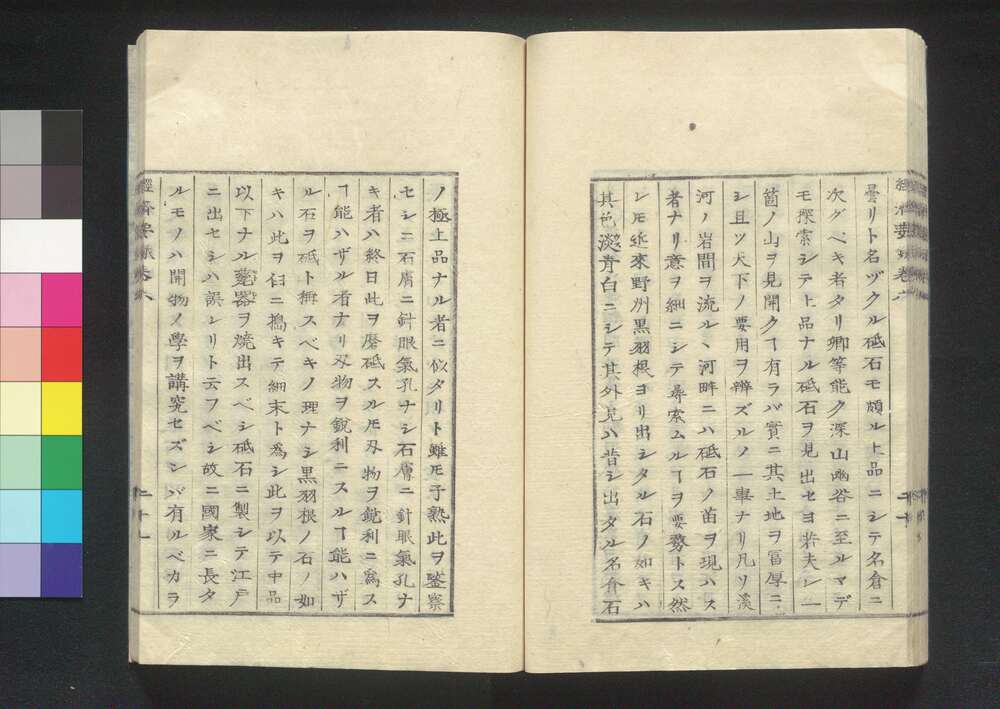 曇リト名ヅクル砥石モ頗ル上品ニシテ名倉ニ
次グベキ者タリ卿等能ク深山幽谷ニ至ルマデ
モ探索シテ上品ナル砥石ヲ見出セヨ若夫レ一
箇ノ山ヲ見開クヿ有ラバ實ニ其土地ヲ冨厚ニ
シ且ツ天下ノ要用ヲ辨ズルノ一事ナリ凡ソ溪
河ノ岩間ヲ流ルヽ河畔ニハ砥石ノ苗ヲ現ハス
者ナリ意ヲ細ニシテ尋索ムルヿヲ要務トス然
レモ近來野州黒羽根ヨリ出シタル石ノ如キハ
其色淡青白ニシテ其外見ハ昔シ出タル名倉石
ノ極上品ナル者ニ似タリト雖モ予熟此ヲ鑒察
セシニ石膚ニ針眼氣孔ナシ石膚ニ針眼氣孔ナ
キ者ハ終日此ヲ磨砥スルモ刄物ヲ鋭利ニ爲ス
ヿ能ハザル者ナリ刄物ヲ鋭利ニスルヿ能ハザ
ル石ヲ砥ト稱スベキノ理ナシ黒羽根ノ石ノ如
キハ此ヲ臼ニ搗キテ細末ト爲シ此ヲ以テ中品
以下ナル甆器ヲ焼出スベシ砥石ニ製シテ江戸
ニ出セシハ誤レリト云フベシ故ニ國家ニ長タ
ルモノハ開物ノ學ヲ講究セズンバ有ルベカラ
經濟要録卷六
二十一